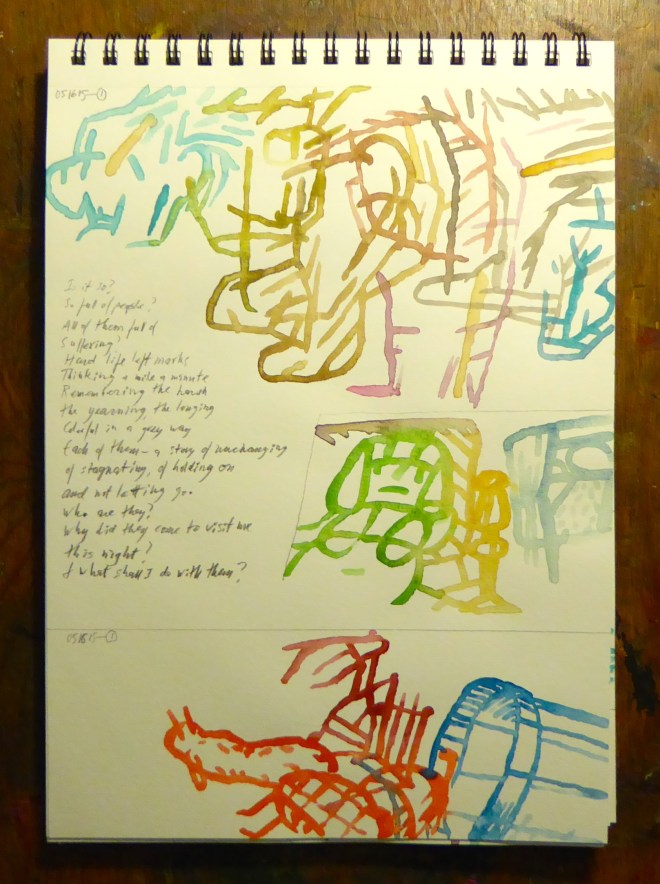 051615—①
Is it so?
So full of people?
All of them full of
Suffering?
Hard life left marks
Thinking a mile a minute
Remembering the harsh
the yearning, the longing
Colorful in a grey way
Each of them – a story of unchanging
of stagnating, of holding on
and not letting go.
Who are they?
Why did they come to visit me
this night?
& what shall I do with them?
051615—②